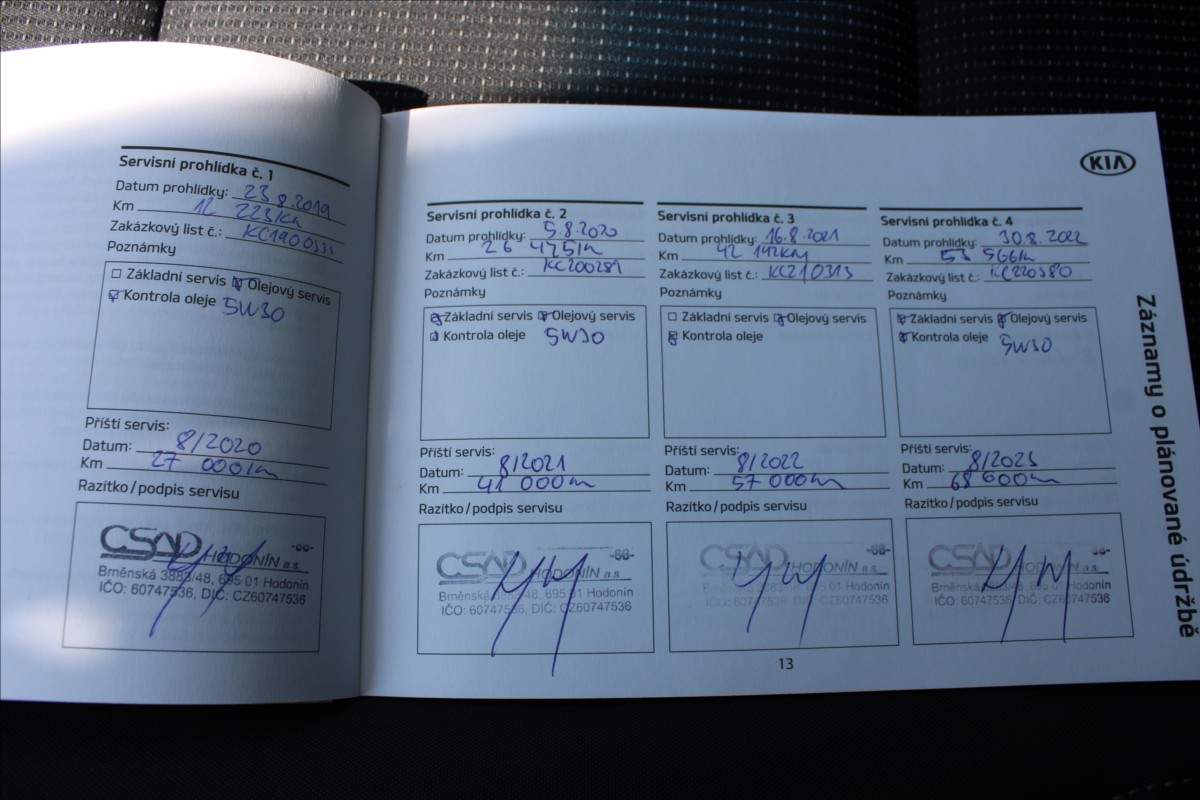 Servisní prohlídka č. 1
Datum prohlídky: 23.8.2019
Km 12 223km
Zakázkový list č.:
Poznámky
Základní servis Olejový servis
Kontrola oleje 5W30
Příští servis:
Datum: 8/2020
Km 27 000km
Razítko/podpis servisu
CSAD HODONÍN a.s.
Brněnská 3883/48, 695 01 Hodonín
IČO: 60747536, DIČ: CZ60747536
KIA
Servisní prohlídka č. 2
Datum prohlídky: 5.8.2020
Km 26 475km
Zakázkový list č.: KC200289
Poznámky
Základní servis Olejový servis
Kontrola oleje 5W30
Příští servis:
Datum: 8/2021
Km 41 000km
Razítko/podpis servisu
CSAD HODONÍN a.s. -88-
Brněnská 3883/48, 695 01 Hodonín
IČO: 60747536, DIČ: CZ60747536
Servisní prohlídka č. 3
Datum prohlídky: 16.8.2021
Km 42 142km
Zakázkový list č.: KC210313
Poznámky
Základní servis Olejový servis
Kontrola oleje
Příští servis:
Datum: 8/2022
Km 57 000km
Razítko/podpis servisu
CSAD HODONÍN a.s.
IČO: 60747536, DIČ: CZ60747536
Servisní prohlídka č. 4
Datum prohlídky: 30.8.2022
Km 53 566km
Zakázkový list č.: KC220380
Poznámky
Základní servis Olejový servis
Kontrola oleje 5W30
Příští servis:
Datum: 8/2023
Km 68 600km
Razítko/podpis servisu
CSAD HODONÍN a.s.
Brněnská 3883/48, 695 01 Hodonín
IČO: 60747536, DIČ: CZ60747536
Záznamy o plánované údržbě
13